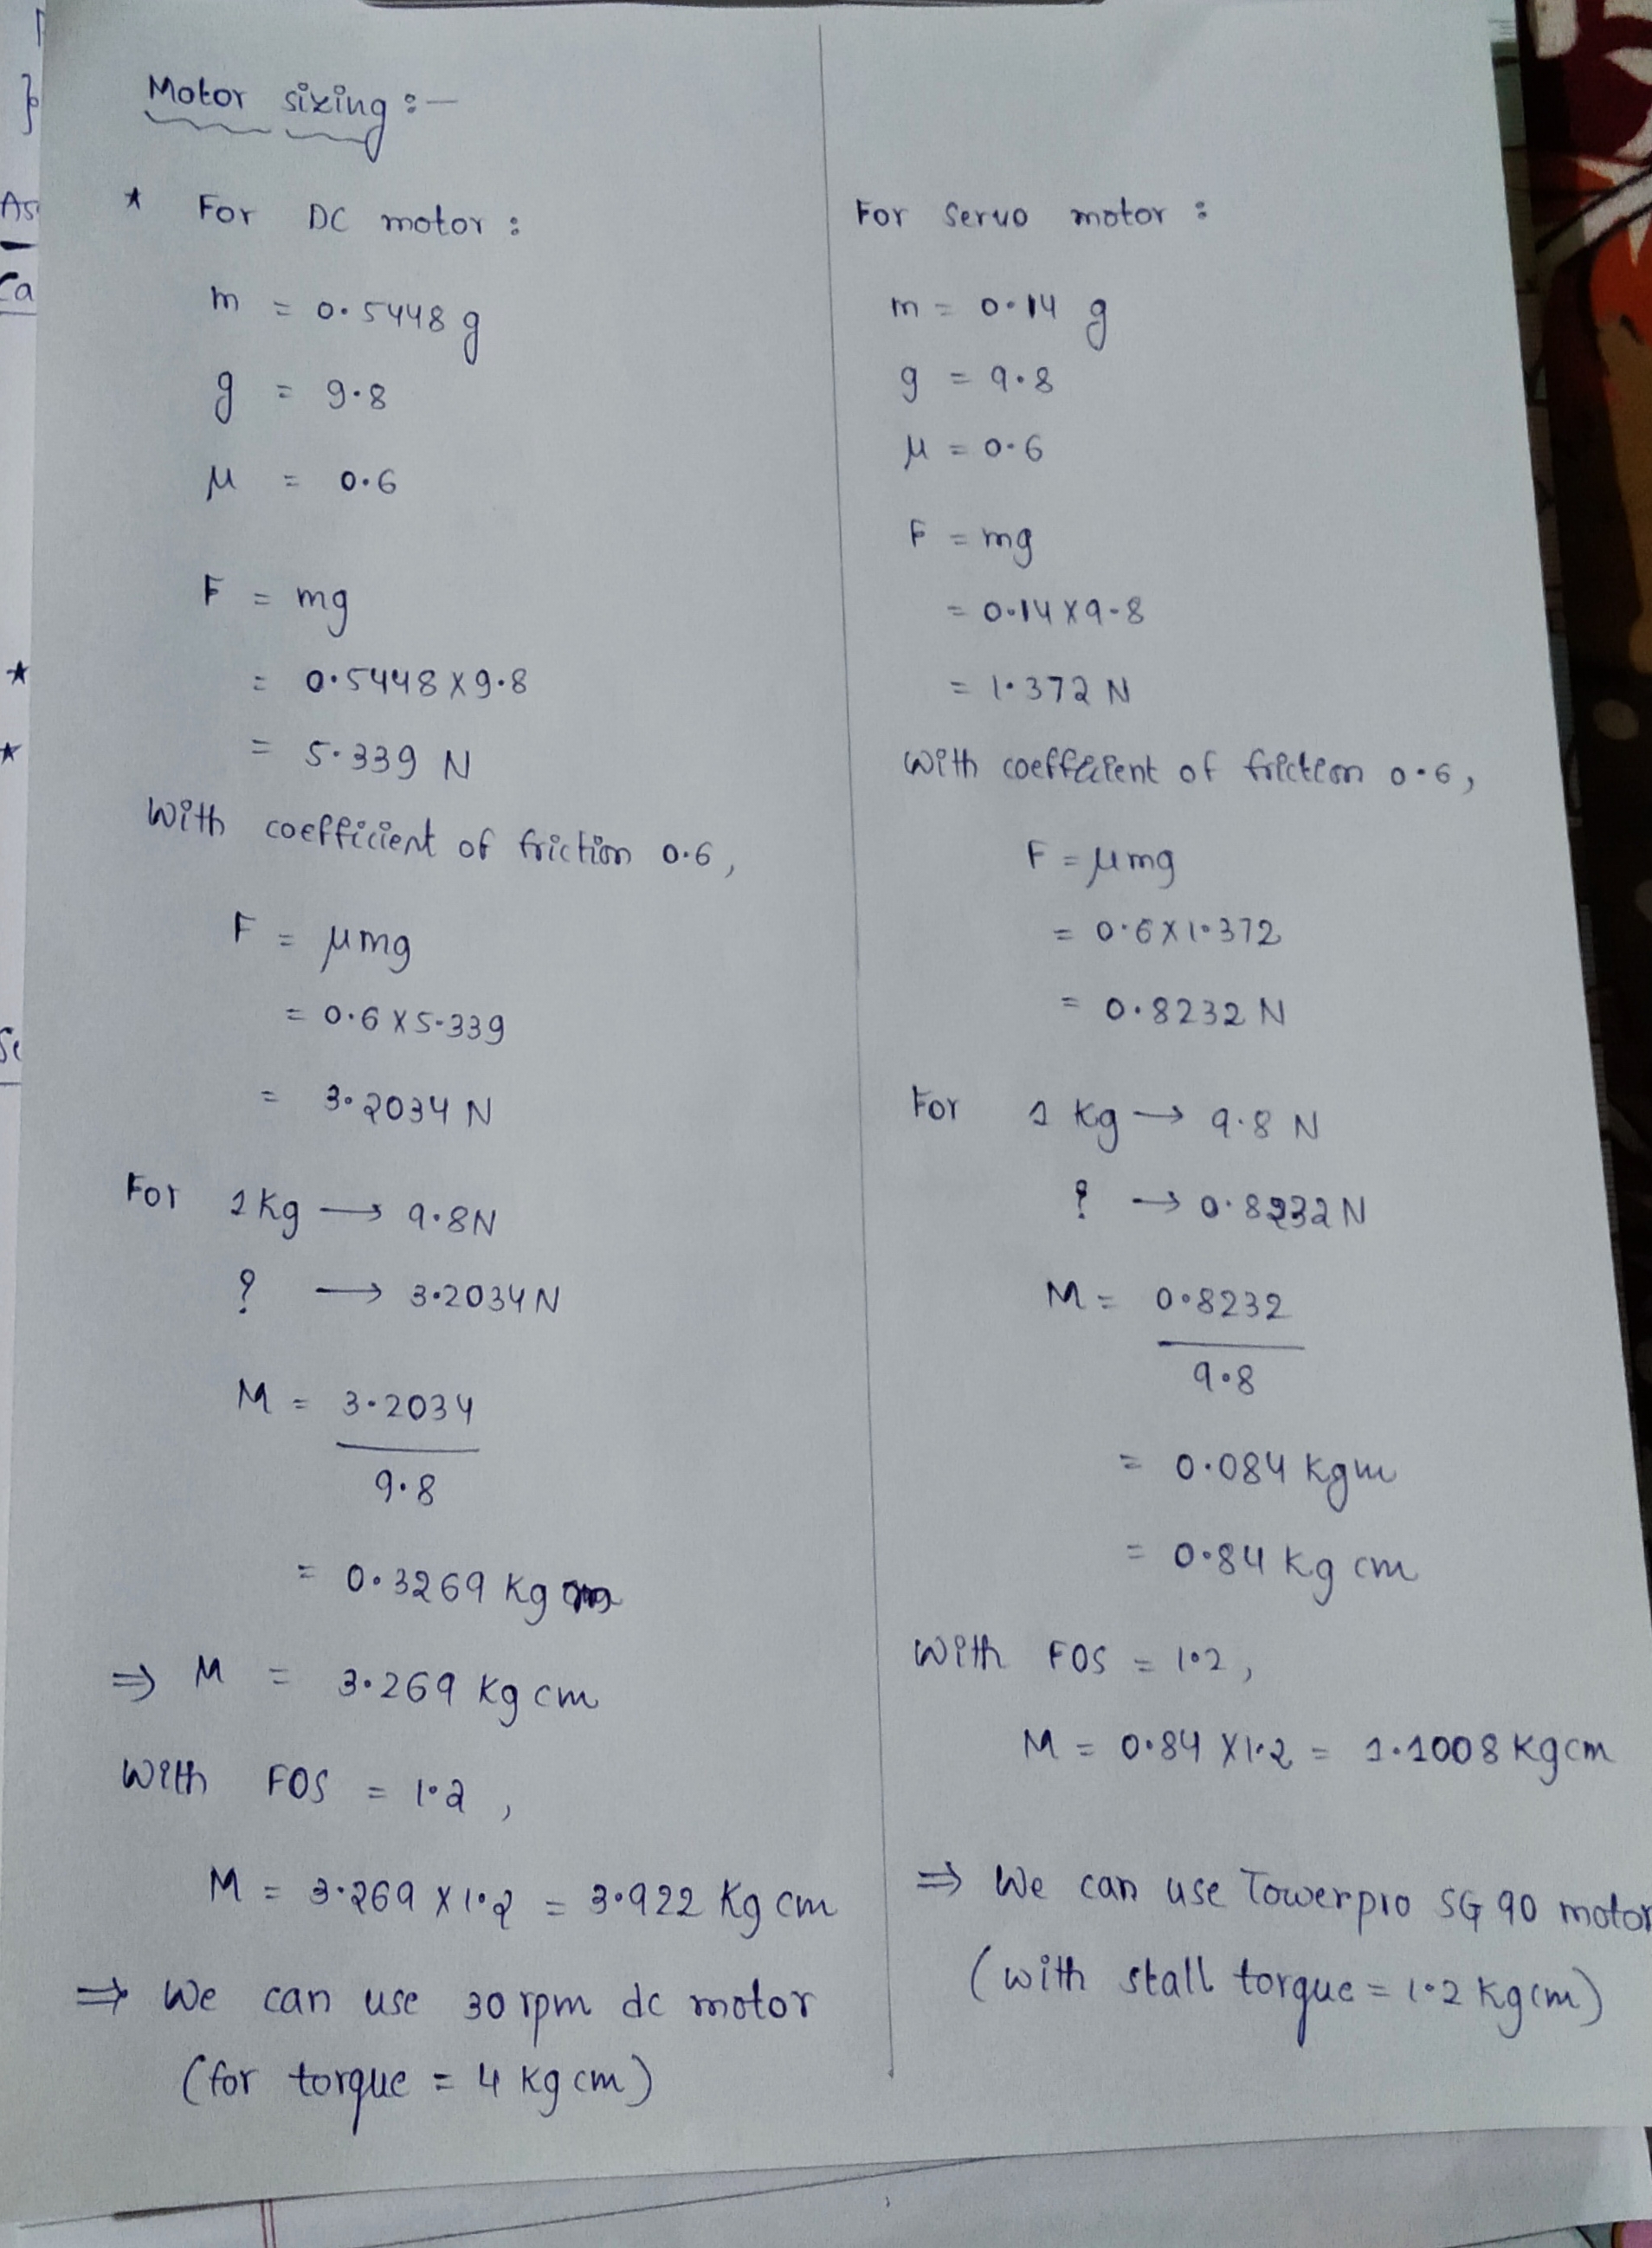 Motor sizing :-
* For DC motor :
m = 0.5448 g
g = 9.8
μ = 0.6
F = mg
= 0.5448 x 9.8
= 5.339 N
With coefficient of friction 0.6,
F = μmg
= 0.6 x 5.339
= 3.2034 N
For 1 Kg → 9.8N
? → 3.2034N
M = 3.2034
9.8
= 0.3269 Kg
⇒ M = 3.269 Kg cm
With FOS = 1.2,
M = 3.269 x 1.2 = 3.922 Kg cm
⇒ We can use 30 rpm dc motor
(for torque = 4 kg cm)
For Servo motor :
m = 0.14 g
g = 9.8
μ = 0.6
F = mg
= 0.14 x 9.8
= 1.372 N
With coefficient of friction 0.6,
F = μmg
= 0.6 x 1.372
= 0.8232 N
For 1 Kg → 9.8 N
? → 0.8232 N
M = 0.8232
9.8
= 0.084 kgm
= 0.84 kg cm
With FOS = 1.2,
M = 0.84 x 1.2 = 1.1008 Kgcm
⇒ We can use Towerpro SG 90 motor
(with stall torque = 1.2 kgcm)
}
As
Ca
*
*
Se